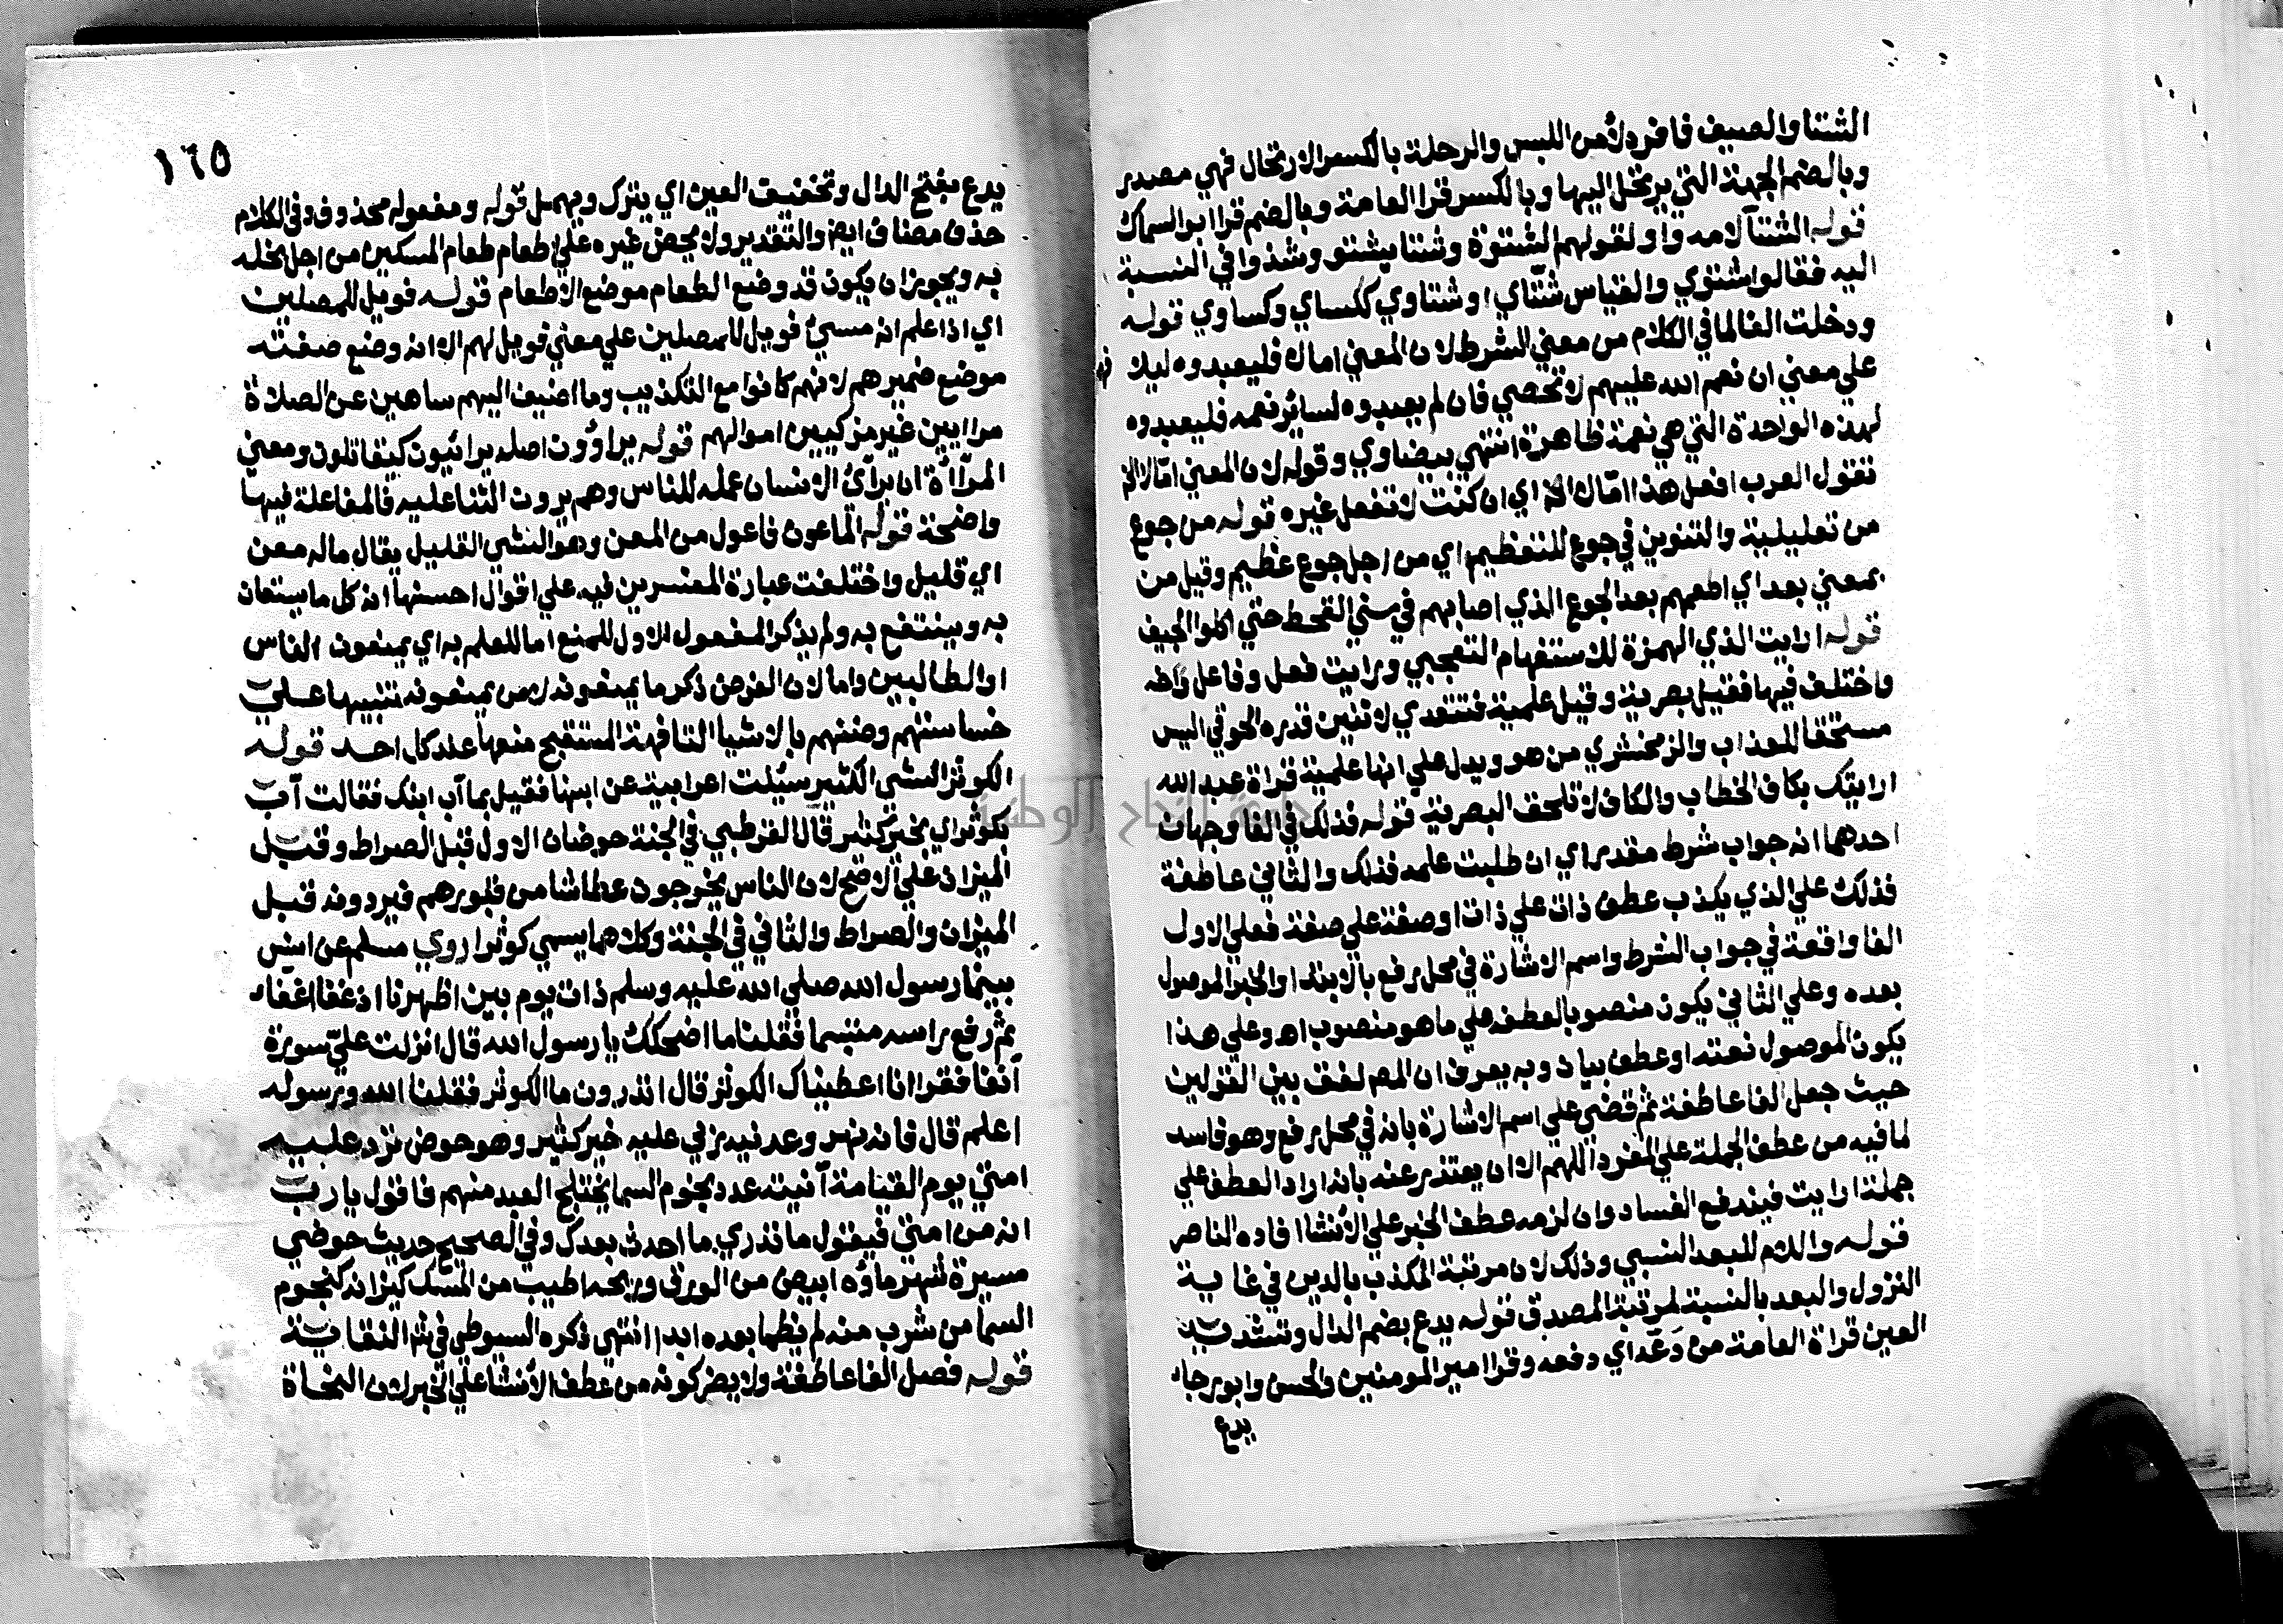 الشتا والصيف فافرد لأمن اللبس والرحلة بالكسر الارتحال فهي مصدر
وبالضم الجهة التي يرتحل اليها وبالكسر قرا العامة وبالضم قرا ابو السماك
قوله الشتآ لامه واو لقولهم الشتوة وشتا يشتو وشذوا في النسبة
اليه فقالوا شتوي والقياس شتاي او شتاوي ككساي وكساوي قوله
ودخلت الفا لما في الكلام من معني الشرط لان المعني اما لا فليعبدوه لايلا
علي معني ان نعم الله عليهم لا تحصي فان لم يعبدوه لساير نعمه فليعبدوه
لهذه الواحدة التي هي نعمة ظاهرة انتهي بيضاوي وقوله لان المعني امّا لا الخ
تقول العرب افعل هذا امّا لا الخ اي ان كنت لا تفعل غيره قوله من جوع
من تعليلية والتنوين في جوع للتعظيم اي من اجل جوع عظيم وقيل من
بمعني بعد اي اطعمهم بعد الجوع الذي اصابهم في سني القحط حتي اكلوا الجيف
قوله ارايت الذي الهمزة للاستفهام التعجبي ورايت فعل وفاعل
واختلف فيها فقيل بصرية وقيل علمية فتتعدي لاثنين قدره الحوفي اليس
مستحقا للعذاب والزمخشري من هو ويدل علي انها علمية قراة عبد الله
ارايتك بكاف الخطاب والكاف لا تلحق البصرية قوله فذلك في الفا وجهان
احدهما انه جواب شرط مقدر اي ان طلبت علمه فذلك والثاني عاطفة
فذلك علي الذي يكذب عطف ذات علي ذات او صفة علي صفة فعلي الاول
الفا واقعة في جواب الشرط واسم الاشارة في محل رفع بالابتدا والخبر الموصول
بعده وعلي الثاني يكون منصوبا بالعطف علي ما هو منصوب اهـ وعلي هذا
يكون الموصول نعته او عطف بيان وبه يعرف ان المص لفق بين القولين
حيث جعل الفا عاطفة ثم قضي علي اسم الاشارة بانه في محل رفع وهو فاسد
لما فيه من عطف الجملة علي المفرد اللهم الا ان يعتذر عنه بانه اراد العطف علي
جملة ارايت فيندفع الفساد وان لزمه عطف الخبر علي الانشا افاده الناصر
قوله واللام للبعد النسبي وذلك لان مرتبة المكذب بالدين في غاية
النزول والبعد بالنسبة لمرتبة المصدق قوله يدع بضم الدال وتشديد
العين قراة العامة من دَعّه اي دفعه وقرا امير المومنين والحسن وابو رجاء
يدع
١٦٥
يدع بفتح الدال وتخفيف العين اي يترك ويهمل قوله ومفعوله محذوف وفي الكلام
حذف مضاف ايض والتقدير ولا يحض غيره علي اطعام طعام المسكين من اجل بخله
به ويجوز ان يكون قد وضع الطعام موضع الاطعام قوله فويل للمصلين
اي اذا علم انه مسئ فويل للمصلين علي معني فويل لهم الا انه وضع صفته
موضع ضميرهم لانهم كانوا مع التكذيب وما اضيف اليهم ساهين عن الصلاة
مراايين غير مزكيين اموالهم قوله يراؤون اصله يرائيون كيقاتلون ومعني
المرّااة ان يرائ الانسان عمله للناس وهم يروت الثنا عليه فالمفاعلة فيها
واضحة قوله الماعون فاعول من المعن وهو الشي القليل يقال ماله معن
اي قليل واختلفت عبارة المفسرين فيه علي اقوال احسنها انه كل ما يستعان
به وينتفع به ولم يذكر المفعول الاول للمنع اما للعلم به اي يمنعون الناس
او الطالبين واما لان الغرض ذكر ما يمنعونه لا من يمنعونه تنبيها علي
خساستهم وضنتهم بالاشيا التافهة المستقبح منعها عند كل احد قوله
الكوثر الشي الكثير سيُلت اعرابية عن ابنها فقيل بما آب ابنك فقالت آب
بكوثر اي بخير كثير قال القرطبي في الجنة حوضان الاول قبل الصراط وقبل
الميزان علي الاصح لان الناس يخرجون عطاشا من قبورهم فيردونه قبل
الميزان والصراط والثاني في الجنة وكلاهما يسمي كوثرا روي مسلم عن انس
بينما رسول الله صلي الله عليه وسلم ذات يوم بين اظهرنا اذ غفا اغفاء
ثم رفع راسه متبسما فقلنا ما اضحكك يا رسول الله قال انزلت عليّ سورة
آنفا فقرا انا اعطيناك الكوثر قال اتدرون ما الكوثر فقلنا الله ورسوله
اعلم قال فانه نهر وعدنيه ربي عليه خير كثير وهو حوض ترد عليه
امتي يوم القيامة آنيته عدد نجوم السما يختلج العبد منهم فاقول يا رب
انه من امتي فيقول ما تدري ما احدث بعدك وفي الصحيح حديث حوضي
مسيرة شهر ماؤه ابيض من الورق وريحه اطيب من المسك كيزانه كنجوم
السما من شرب منه لم يظما بعده ابدا انتهي ذكره السيوطي في شر النقاية
قوله فصل الفا عاطفة ولا يضر كونه من عطف الانشا علي الخبر لان النحاة